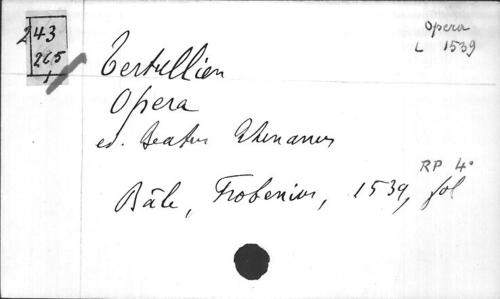 243
265
1
Opera
L 1539
Tertullien
Opera
ed. Beatus Rhenanus
RP 4°
Bâle, Frobenius, 1539, fol